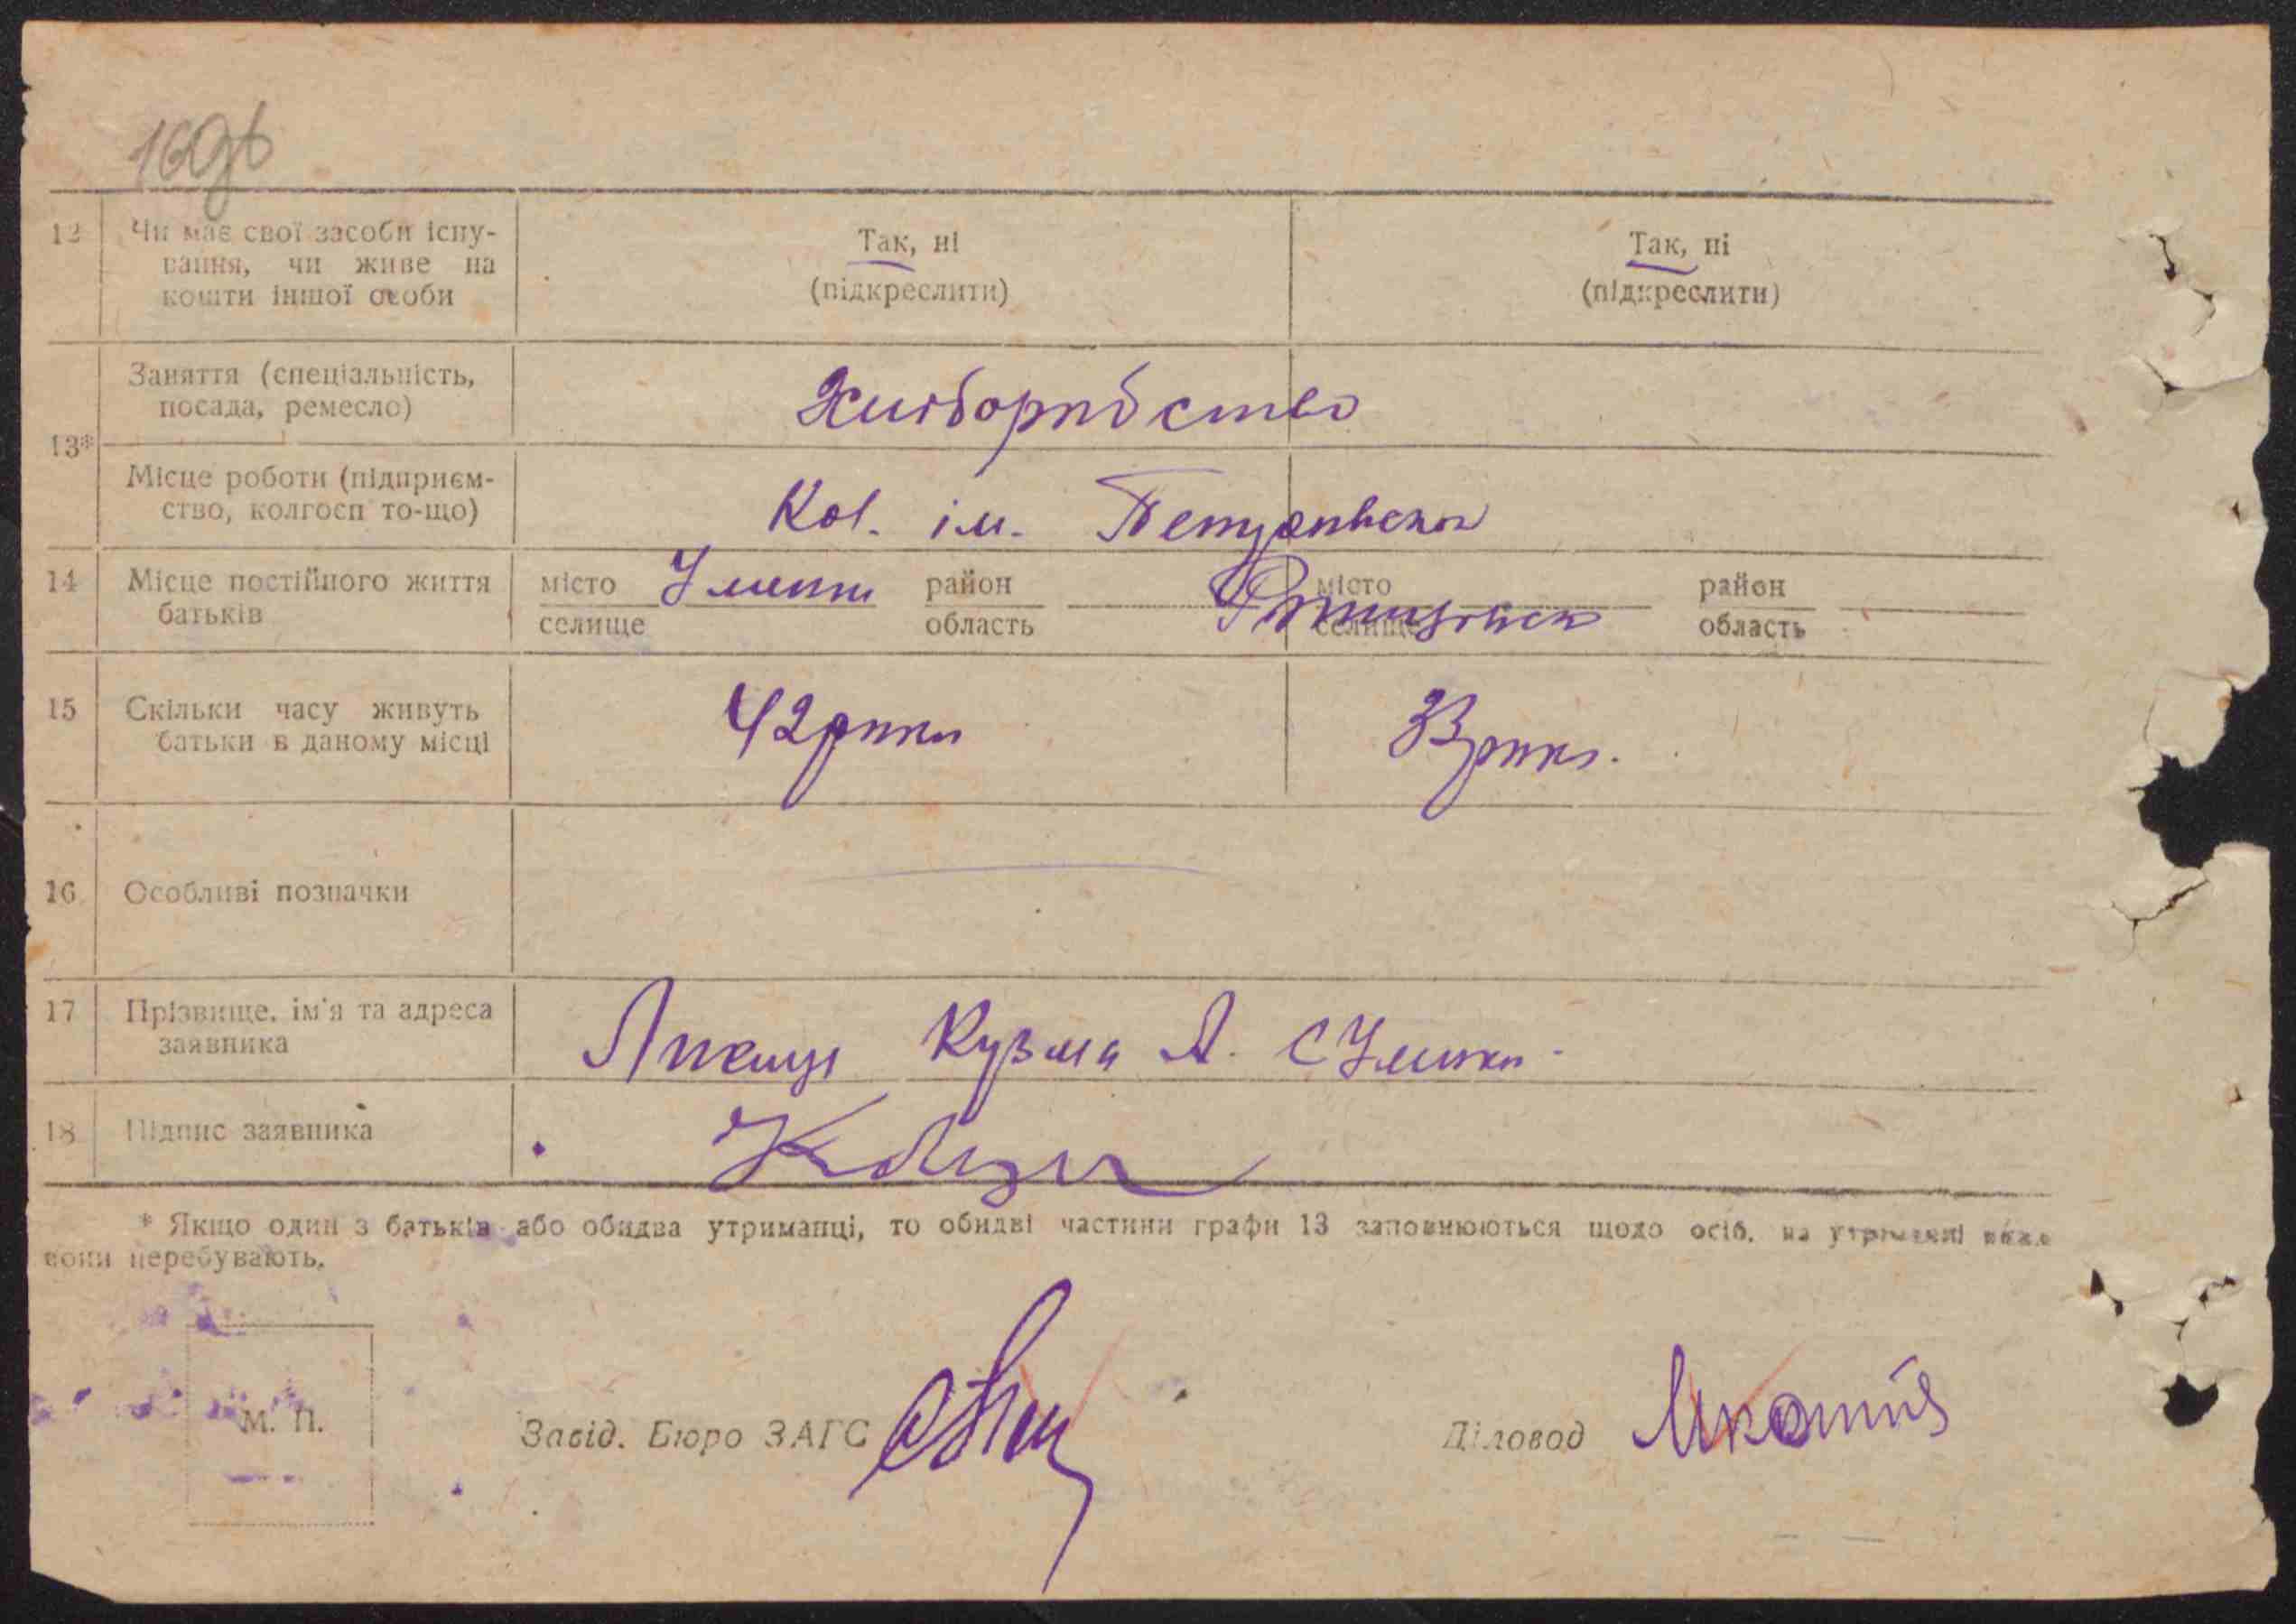 169б
12 Чи має свої засоби існу-
вання, чи живе на
кошти іншої особи
Так, ні
(підкреслити)
Так, ні
(підкреслити)
13*
Заняття (спеціальність,
посада, ремесло)
Хліборобство
Місце роботи (підприєм-
ство, колгосп то-що)
Кол. ім. Петровського
14 Місце постійного життя
батьків
місто
селище
район
область
місто
селище
район
область
15 Скільки часу живуть
батьки в даному місці
42 роки
33 роки.
16 Особливі позначки
17 Прізвище, ім'я та адреса
заявника
Кузьма А. с
18 Підпис заявника
* Якщо один з батьків або обидва утриманці, то обидві частини графи 13 заповнюються щодо осіб, на утриманні яких
вони перебувають.
М. П.
Завід. Бюро ЗАГС
Діловод